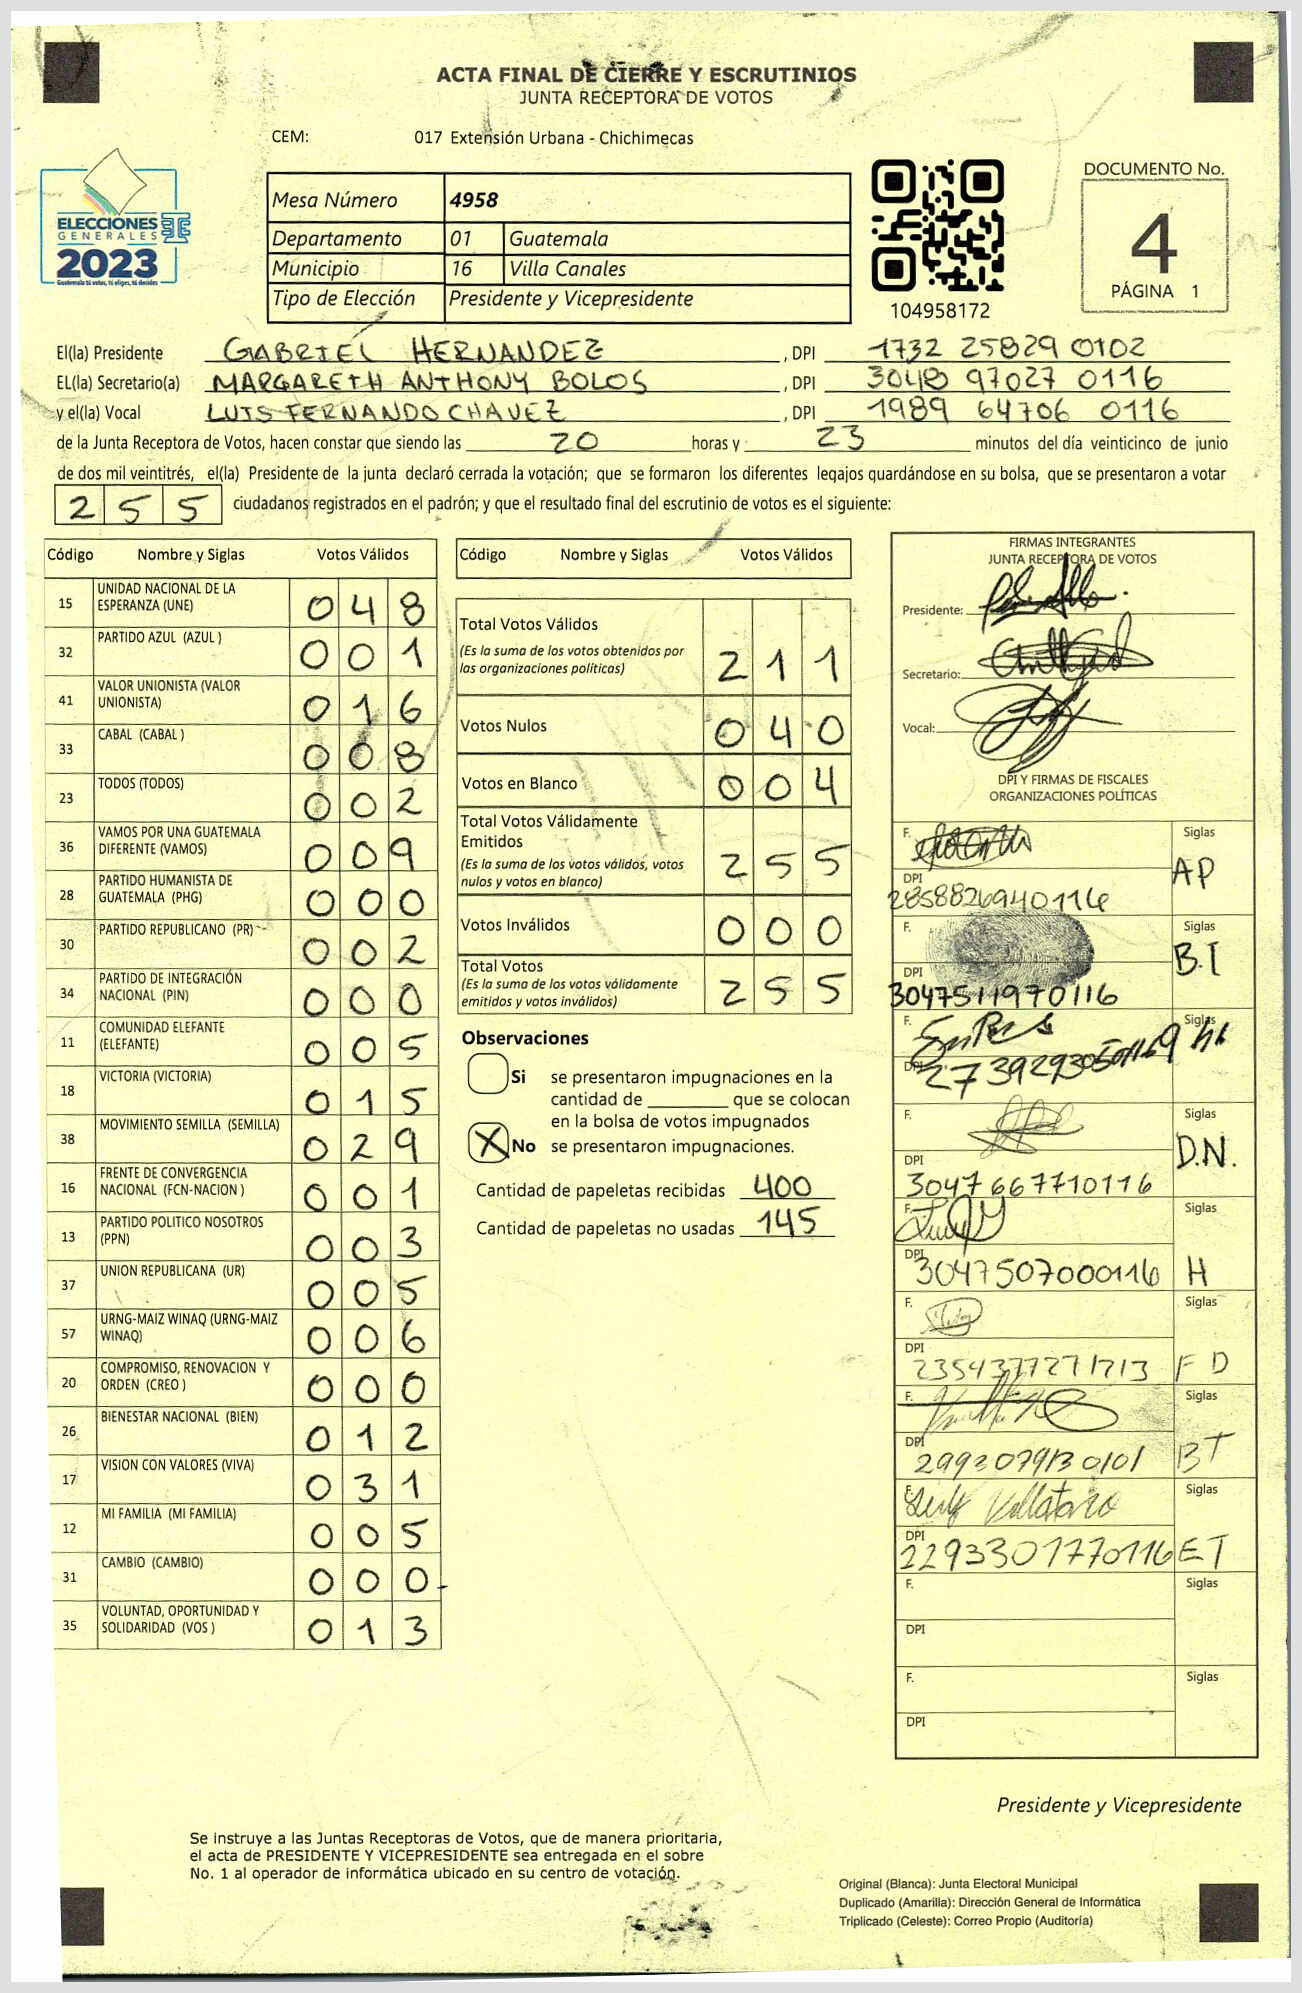 ACTA FINAL DE CIERRE Y ESCRUTINIOS
JUNTA RECEPTORA DE VOTOS
CEM: 017 Extensión Urbana - Chichimecas
ELECCIONES
GENERALES
2023
Guatemala tú votas, tú eliges, tú decides
Mesa Número 4958
Departamento 01 Guatemala
Municipio 16 Villa Canales
Tipo de Elección Presidente y Vicepresidente
104958172
DOCUMENTO No.
4
PÁGINA 1
El(la) Presidente GABRIEL HERNANDEZ , DPI 1732 25829 0102
EL(la) Secretario(a) MARGARETH ANTHONY BOLOS , DPI 3048 97027 0116
y el(la) Vocal LUIS FERNANDO CHAVEZ , DPI 1989 64706 0116
de la Junta Receptora de Votos, hacen constar que siendo las 20 horas y 23 minutos del día veinticinco de junio
de dos mil veintitrés, el(la) Presidente de la junta declaró cerrada la votación; que se formaron los diferentes legajos guardándose en su bolsa, que se presentaron a votar
255 ciudadanos registrados en el padrón; y que el resultado final del escrutinio de votos es el siguiente:
Código Nombre y Siglas Votos Válidos
15 UNIDAD NACIONAL DE LA ESPERANZA (UNE) 048
32 PARTIDO AZUL (AZUL ) 001
41 VALOR UNIONISTA (VALOR UNIONISTA) 016
33 CABAL (CABAL ) 008
23 TODOS (TODOS) 002
36 VAMOS POR UNA GUATEMALA DIFERENTE (VAMOS) 009
28 PARTIDO HUMANISTA DE GUATEMALA (PHG) 000
30 PARTIDO REPUBLICANO (PR) 002
34 PARTIDO DE INTEGRACIÓN NACIONAL (PIN) 000
11 COMUNIDAD ELEFANTE (ELEFANTE) 005
18 VICTORIA (VICTORIA) 015
38 MOVIMIENTO SEMILLA (SEMILLA) 029
16 FRENTE DE CONVERGENCIA NACIONAL (FCN-NACION ) 001
13 PARTIDO POLITICO NOSOTROS (PPN) 003
37 UNION REPUBLICANA (UR) 005
57 URNG-MAIZ WINAQ (URNG-MAIZ WINAQ) 006
20 COMPROMISO, RENOVACION Y ORDEN (CREO ) 000
26 BIENESTAR NACIONAL (BIEN) 012
17 VISION CON VALORES (VIVA) 031
12 MI FAMILIA (MI FAMILIA) 005
31 CAMBIO (CAMBIO) 000
35 VOLUNTAD, OPORTUNIDAD Y SOLIDARIDAD (VOS ) 013
Código Nombre y Siglas Votos Válidos
Total Votos Válidos
(Es la suma de los votos obtenidos por las organizaciones políticas) 211
Votos Nulos 040
Votos en Blanco 004
Total Votos Válidamente Emitidos
(Es la suma de los votos válidos, votos nulos y votos en blanco) 255
Votos Inválidos 000
Total Votos
(Es la suma de los votos válidamente emitidos y votos inválidos) 255
Observaciones
Si se presentaron impugnaciones en la
cantidad de ________ que se colocan
en la bolsa de votos impugnados
X No se presentaron impugnaciones.
Cantidad de papeletas recibidas 400
Cantidad de papeletas no usadas 145
FIRMAS INTEGRANTES
JUNTA RECEPTORA DE VOTOS
Presidente:
Secretario:
Vocal:
DPI Y FIRMAS DE FISCALES
ORGANIZACIONES POLÍTICAS
F. Siglas
DPI 2858826940116 AP
F. Siglas
DPI 3047511970116 B.I
F. Siglas
DPI
F. Siglas
DPI 3047667710116 D.N.
F. Siglas
DPI 3047507000116 H
F. Siglas
DPI 2354377271713 F D
F. Siglas
DPI 2993079130101 BT
F. Siglas
DPI 2293301770116 ET
F. Siglas
DPI
F. Siglas
DPI
Presidente y Vicepresidente
Se instruye a las Juntas Receptoras de Votos, que de manera prioritaria,
el acta de PRESIDENTE Y VICEPRESIDENTE sea entregada en el sobre
No. 1 al operador de informática ubicado en su centro de votación.
Original (Blanca): Junta Electoral Municipal
Duplicado (Amarilla): Dirección General de Informática
Triplicado (Celeste): Correo Propio (Auditoría)